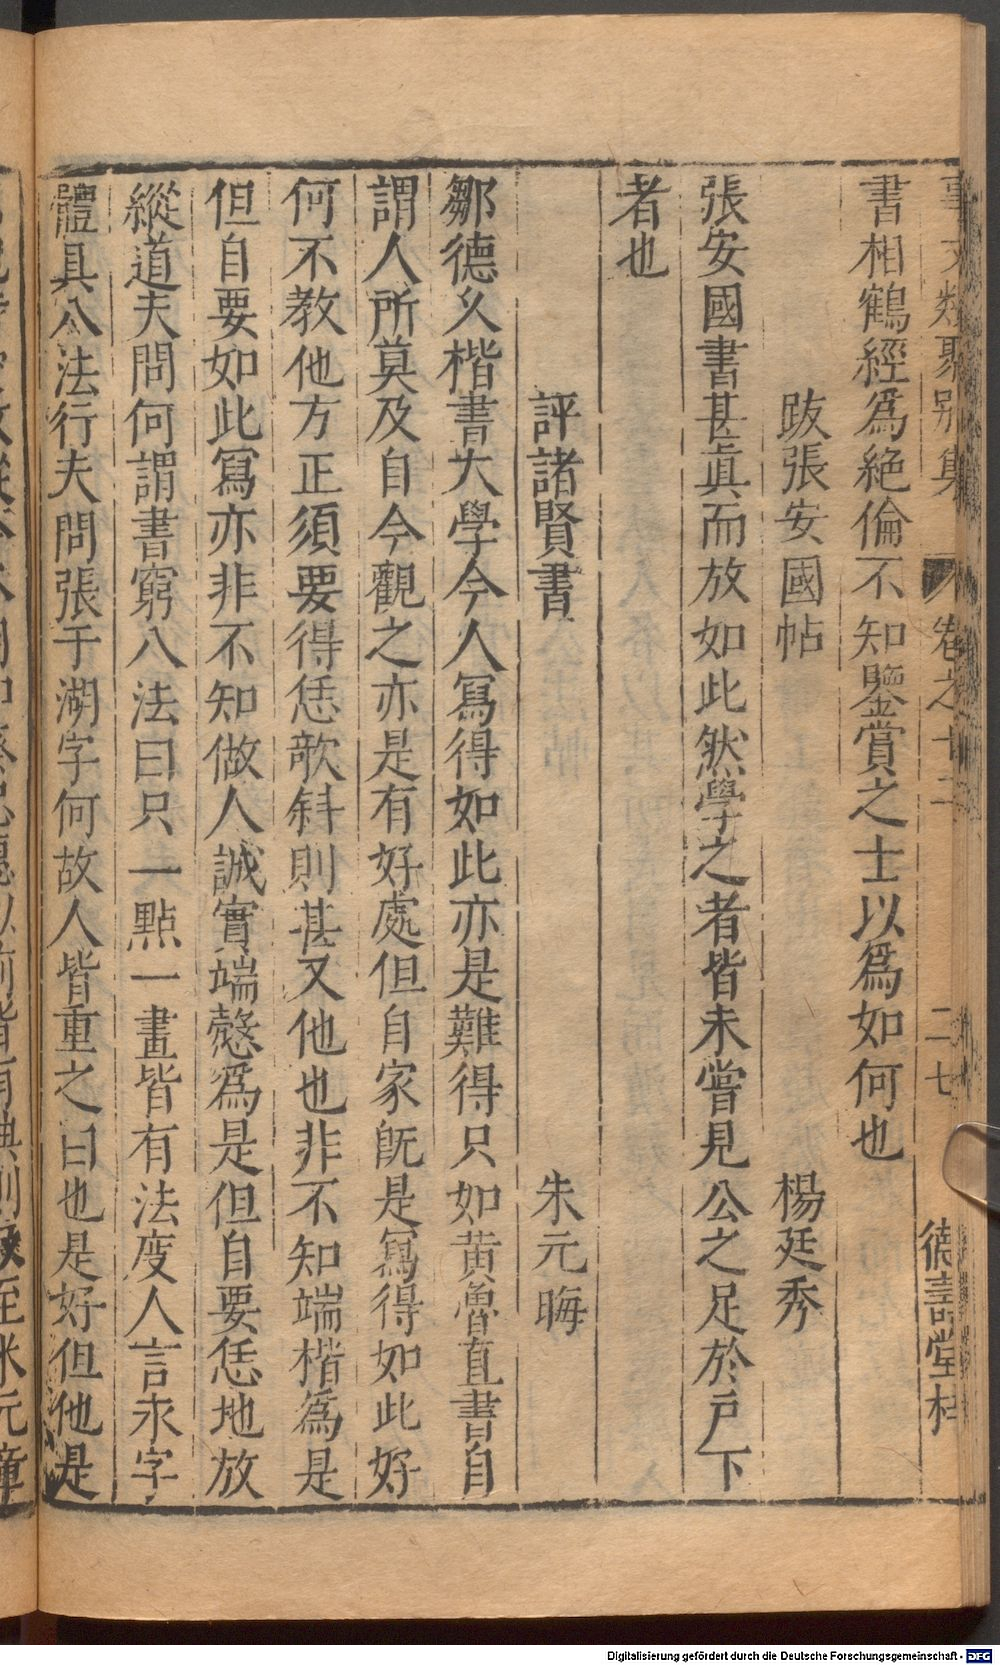 事文類聚別集 卷之十二 二七 德壽堂梓
書相鶴經爲絶倫不知鑒賞之士以爲如何也
跋張安國帖 楊廷秀
張安國書甚真而放如此然學之者皆未嘗見公之足於戸下
者也
評諸賢書 朱元晦
鄒德久楷書大學今人冩得如此亦是難得只如黄魯直書自
謂人所莫及自今觀之亦是有好處但自家旣是冩得如此好
何不教他方正須要得恁欹斜則甚又他也非不知端楷爲是
但自要如此冩亦非不知做人誠實端慤爲是但自要恁地放
縱道夫問何謂書窮八法曰只一點一畫皆有法度人言永字
體具八法行夫問張于湖字何故人皆重之曰也是好但他是
Digitalisierung gefördert durch die Deutsche Forschungsgemeinschaft - DFG